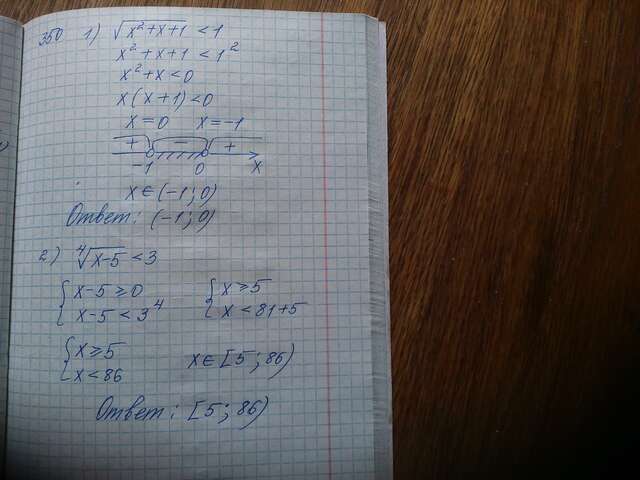 350 1) √(x²+x+1) < 1
x²+x+1 < 1²
x²+x<0
x(x+1)<0
x=0 x=-1
+ − +
-1 0 x
x∈(-1;0)
Ответ: (-1;0)
2) ∜(x-5) < 3
{x-5≥0 {x≥5
{x-5<3⁴ {x<81+5
{x≥5
{x<86 x∈[5;86)
Ответ: [5;86)